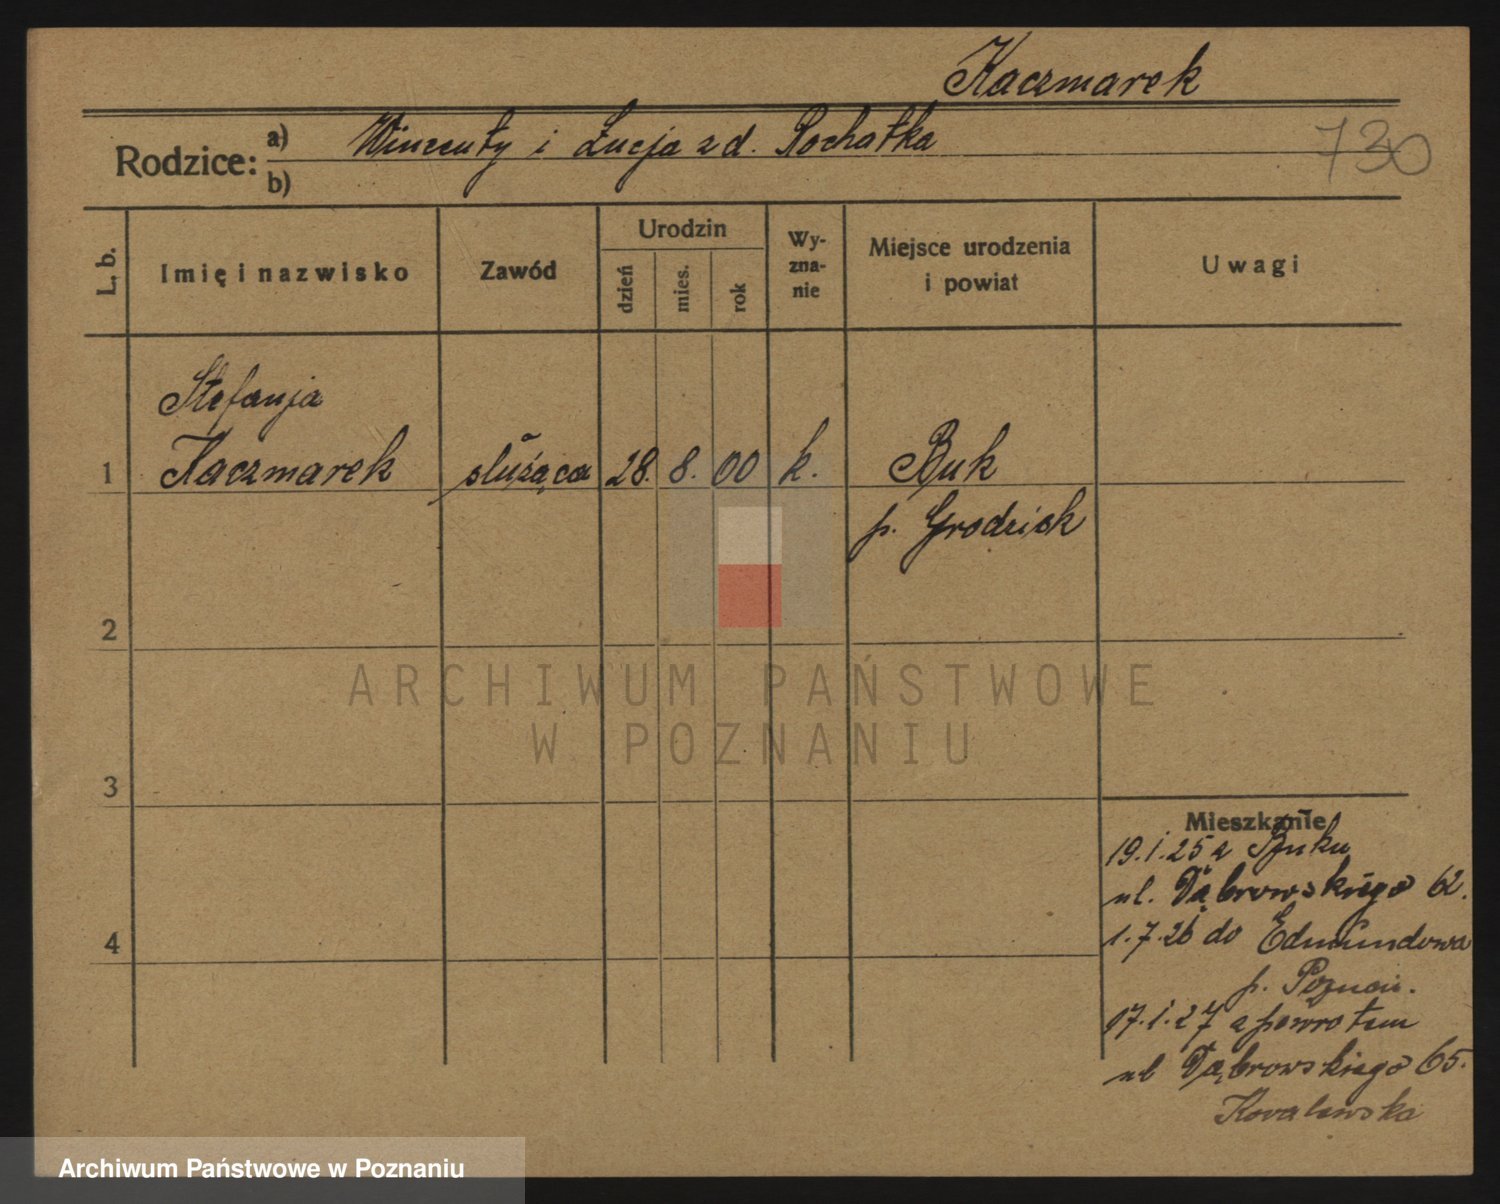 Kaczmarek
730
Rodzice: a) Wincenty i Łucja z d. Pochatka
b)
L. b. Imię i nazwisko Zawód Urodzin dzień mies. rok Wy-zna-nie Miejsce urodzenia i powiat Uwagi
Stefanja
1 Kaczmarek służąca 28. 8. 00 k. Buk
p. Grodzisk
2
ARCHIWUM PAŃSTWOWE
W POZNANIU
3
Mieszkanie
19.1.25 z Buku
ul. Dąbrowskiego 62.
4
1.7.26 do Edmundowa
p. Poznań.
17.1.27 z powrotem
ul Dąbrowskiego 65.
Kovalewska
Archiwum Państwowe w Poznaniu